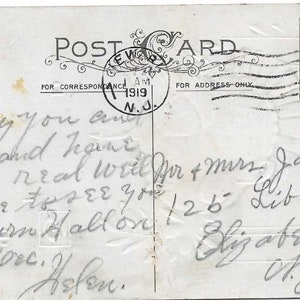 POST CARD
FOR CORRESPONDENCE
FOR ADDRESS ONLY.
NEWARK
1 AM
1919
N.J.
y you and
and have
real well
e to see you
urn Hall on
Dec.
Helen.
Mr & Mrs Ja
125 Lib
Elizabe
N.